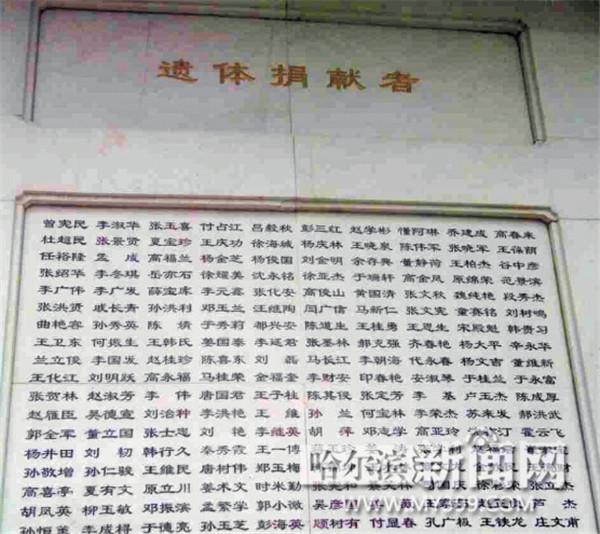 遗体捐献者
曾宪民 李淑华 张玉喜 付占江 吕毅秋 彭三红 赵学彬 懂阿琳 乔建成 高春来
杜超民 张景贤 夏宝珍 王庆功 徐海城 杨庆林 王晓泉 陈伟军 张晓军 王保荫
任裕隆 孟成 高福兰 杨金芝 杨俊国 刘金明 余存兴 董静荷 王柏杰 谷中彦
张绍华 李冬琪 岳亦石 徐耀美 沈永铭 徐亚杰 于珊轩 高金凤 原绵荣 范景滨
李广伟 李广发 薛宝库 李元鑫 张化安 高俊山 黄国清 张文秋 魏纯艳 段秀杰
张洪贤 戚长青 孙洪利 邓玉兰 汪继陶 闫广信 马新仁 张文宪 童赛铭 刘树鸣
曲艳容 孙秀英 陈婧 于秀莉 郝兴安 陈道生 王桂勇 王恩生 宋殿魁 韩贵习
王卫东 何振生 王韩氏 姜国泰 李延君 张墨林 郭克强 齐春艳 杨大平 辛永华
兰立俊 李国发 赵桂珍 陈喜东 刘磊 马长江 李朝海 代永春 杨文吉 董维新
王化江 刘明跃 高永福 马桂荣 金福奎 李财安 印春艳 安淑琴 于桂兰 于永富
张贺林 赵淑芳 李伟 唐国君 王子柱 陈其俊 张定芳 李基 卢玉杰 陈成厚
赵雁臣 吴德宣 刘治种 李洪艳 王维 孙兰 何宝林 李荣杰 苏来发 郝洪武
郭全军 董立国 张士志 刘艳 李继英 胡萍 邓志学 高亚玲 汀 霍云飞
杨井田 刘韧 韩行久 秦秀霞 王一博
孙敬增 孙仁骏 王维民 唐树伟 郑玉梅 财
高喜亭 夏有文 原立川 姜术文 时米勤
胡凤英 柳玉敏 邓振滨 孟繁学 郭小微 吴彦 芦杰
孙恒美 李成得 于德亮 孙玉芝 彭海英 顾树有 付显春 孔广极 王铁龙 庄文甫
哈尔滨新闻网
WWW.MY399.COM